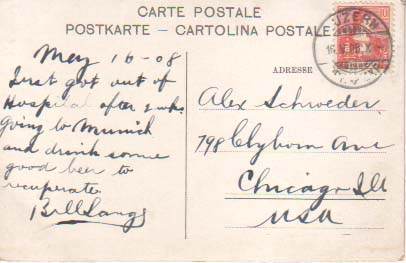 CARTE POSTALE
POSTKARTE — CARTOLINA POSTALE
LUZERN
10
May 16-08
Just got out of
Hospital after 2 wks.
going to Munich
and drink some
good beer to
recuperate
Bill Lang
ADRESSE
Alex Schroeder
798 Clyborn Ave
Chicago Ill
USA